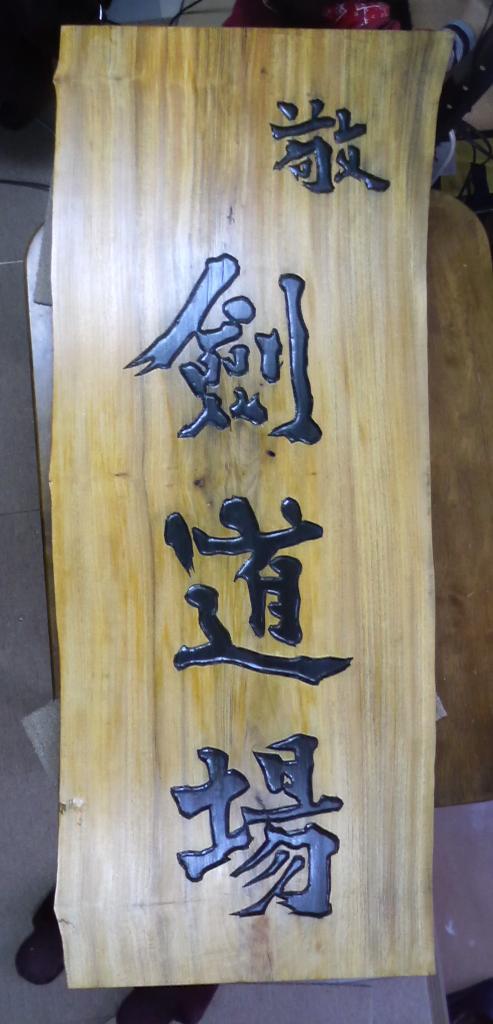 敬
劍道場